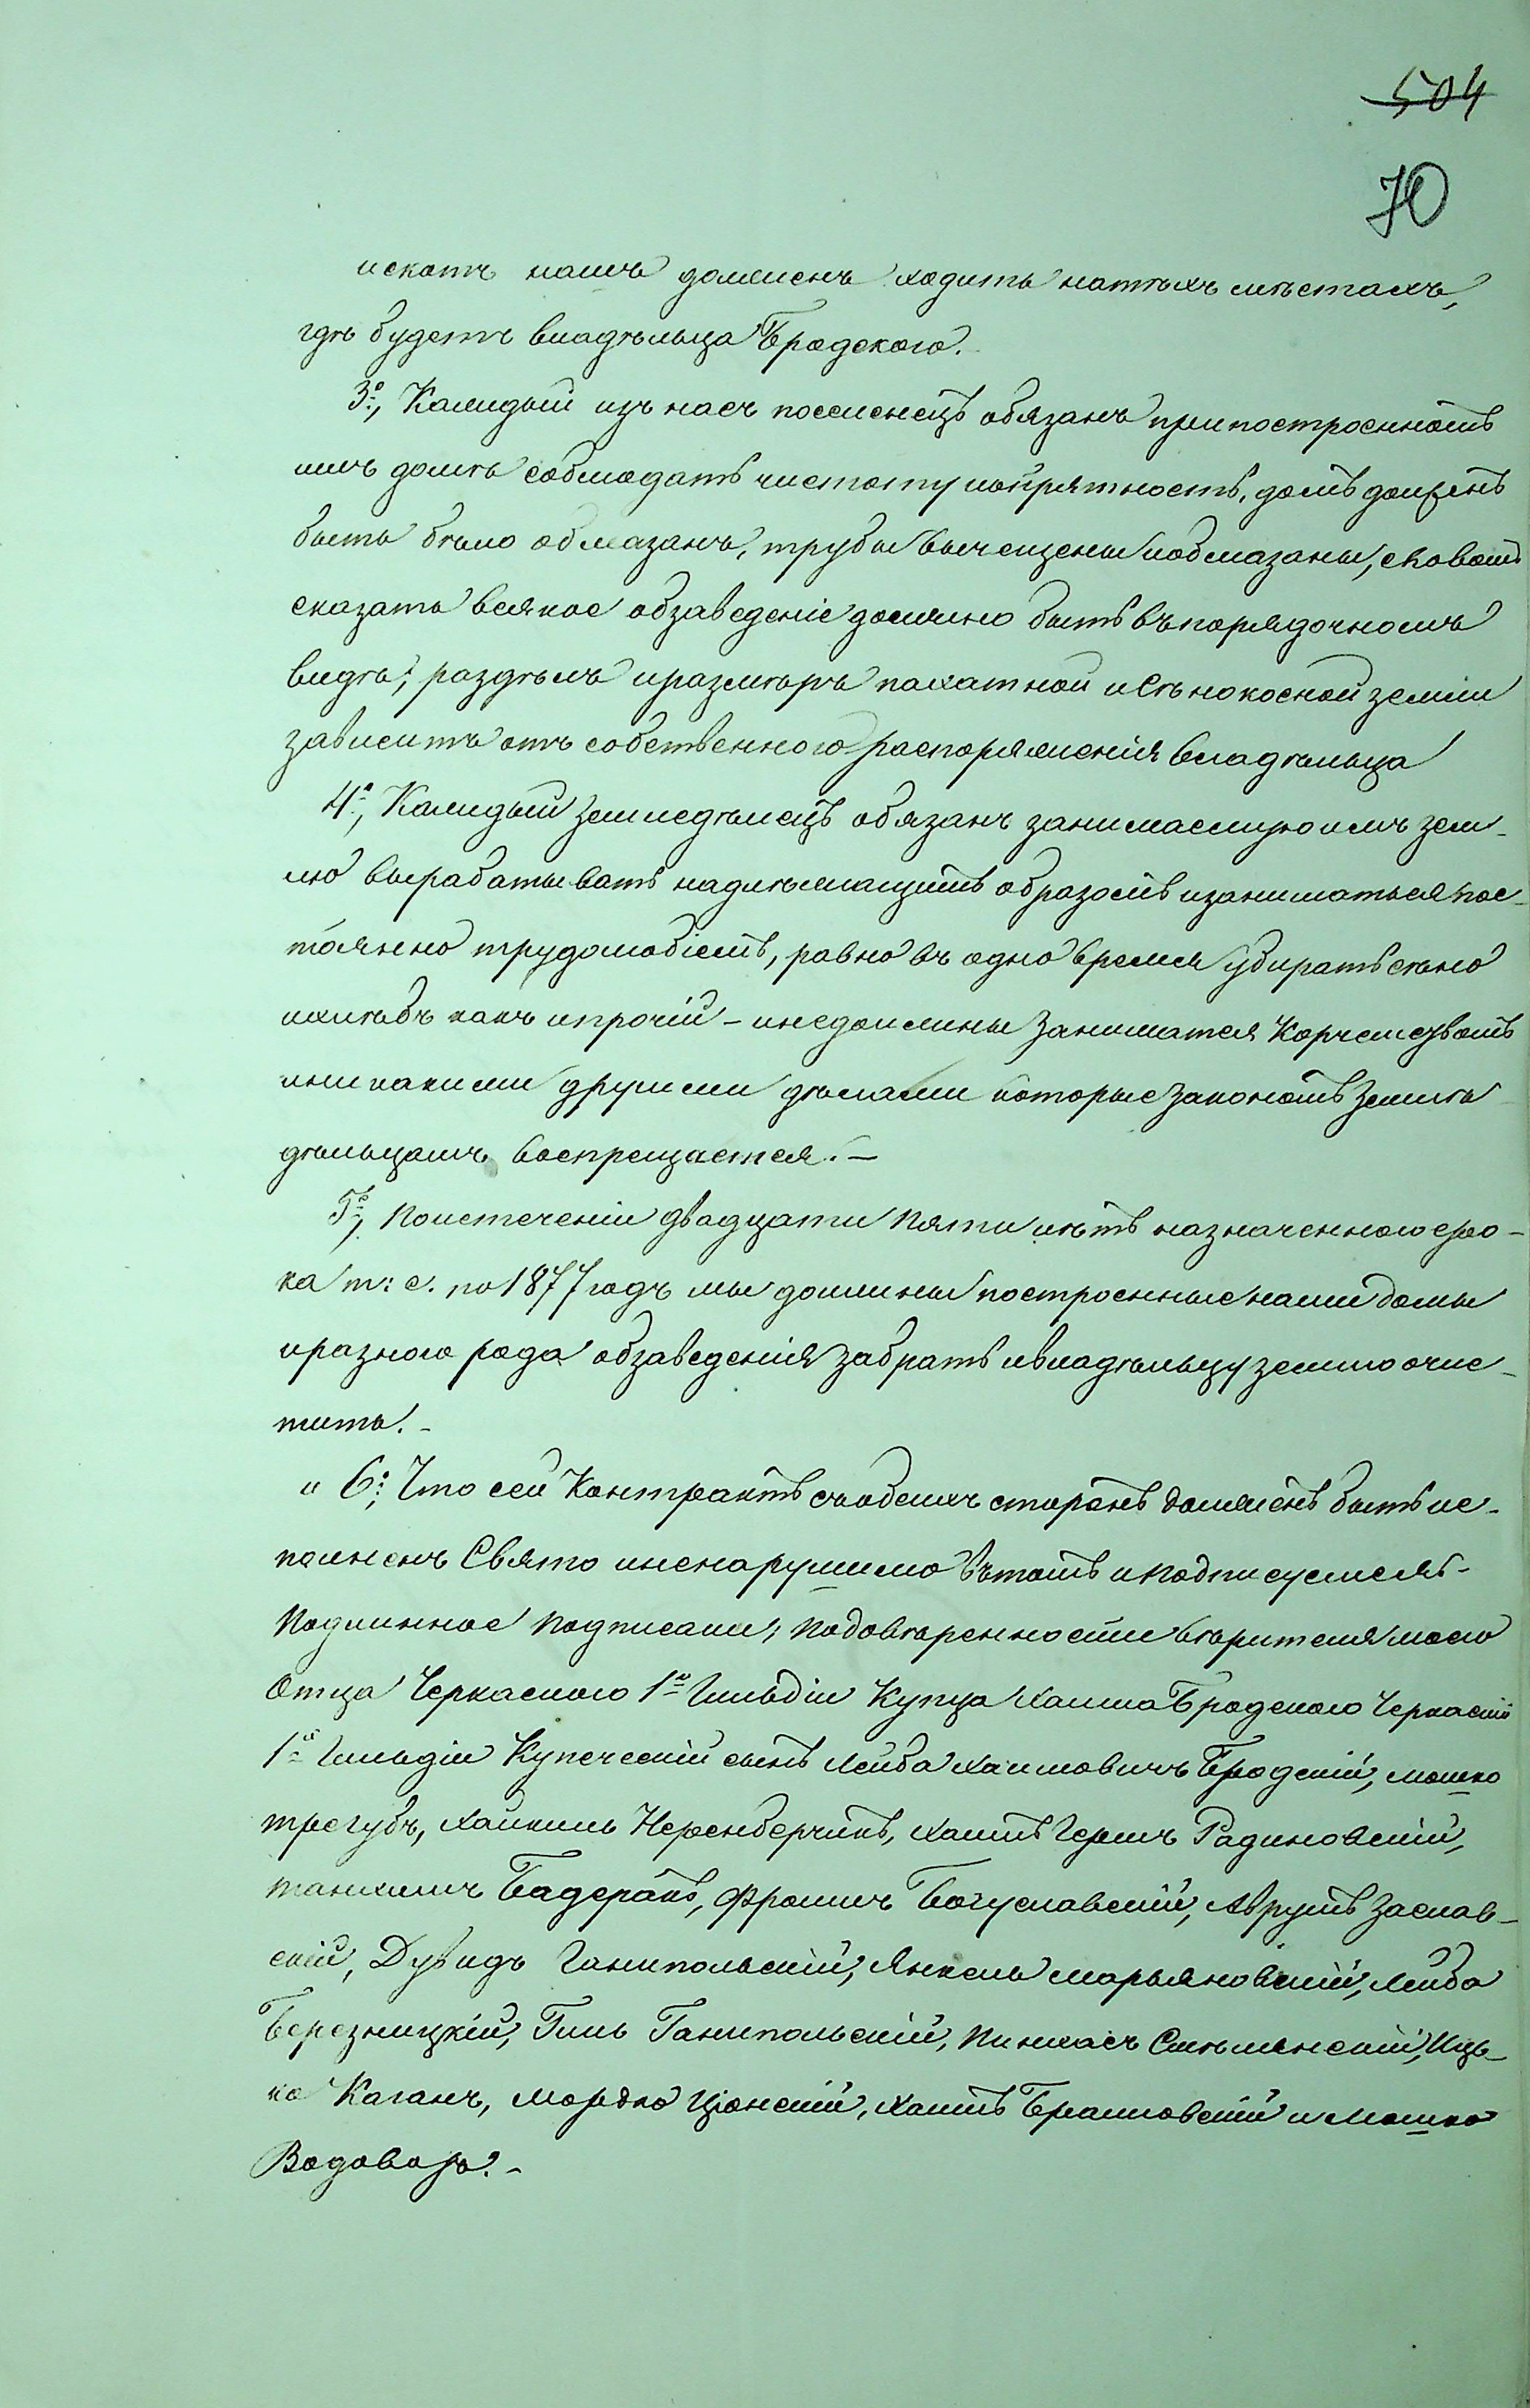 504
70
искатъ нашъ долженъ ходить натѣхъ мѣстахъ,
гдѣ будетъ владѣльца Бродского.
3º, Каждый изъ насъ поселенецъ обязанъ припостроенномъ
имъ домѣ соблюдать чистоту иопрятность, домъ долженъ
быть бѣло обмазанъ, трубы вычещены иобмазаны, словомъ
сказать всякое обзаведеніе должно быть въпорядочномъ
видѣ; раздѣлъ иразмѣръ пахатной исѣнокосной земли
зависитъ отъ собственного распоряженія владѣльца
4º, Каждый земледѣлецъ обязанъ занимаемую имъ зем-
лю вырабатывать надлѣжащимъ образомъ изаниматься пос-
тоянно трудолюбіемъ, равно въ одно время убирать сѣно
ихлѣбъ какъ ипрочій - инедолжны заниматся Корчемствомъ
иникакими другими дѣлами которые закономъ землѣ
дѣльцамъ воспрещается. -
5º, Поистеченіи двадцати пяти лѣтъ назначенного сро-
ка т: е. по 1877 годъ мы должны построенные нами домы
иразного рода обзаведенія забрать ивладѣльцу землю очис-
тить. -
и 6º, Что сей Контрактъ съобеихъ сторонъ долженъ быть ис-
полненъ Свято иненарушимо въ томъ и подписуемся -
Подлинное подписали; Подовѣренности вѣрителя моего
Отца Черкаского 1й Гильдіи Купца Хаима Бродского Черкаскій
1й Гильдіи Купеческій сынъ Лейба Хаимовичъ Бродскій, Мошко
трегубъ, Хайкиль Неренберчикъ, Хаимъ Гершъ Радиновскій,
танхимъ Бадеранъ, Фроимъ Богуславскій, Аврумъ Заслав-
скій, Дувидъ Ганипольскій, Янкель Марьяновскій, Лейба
Березницкій, Гиль Ганипольскій, Пинхасъ Смѣлянскій, Иць-
ко Каганъ, Мордко Ціонскій, Хаимъ Браиловскій и Мошко
Водовозъ. -